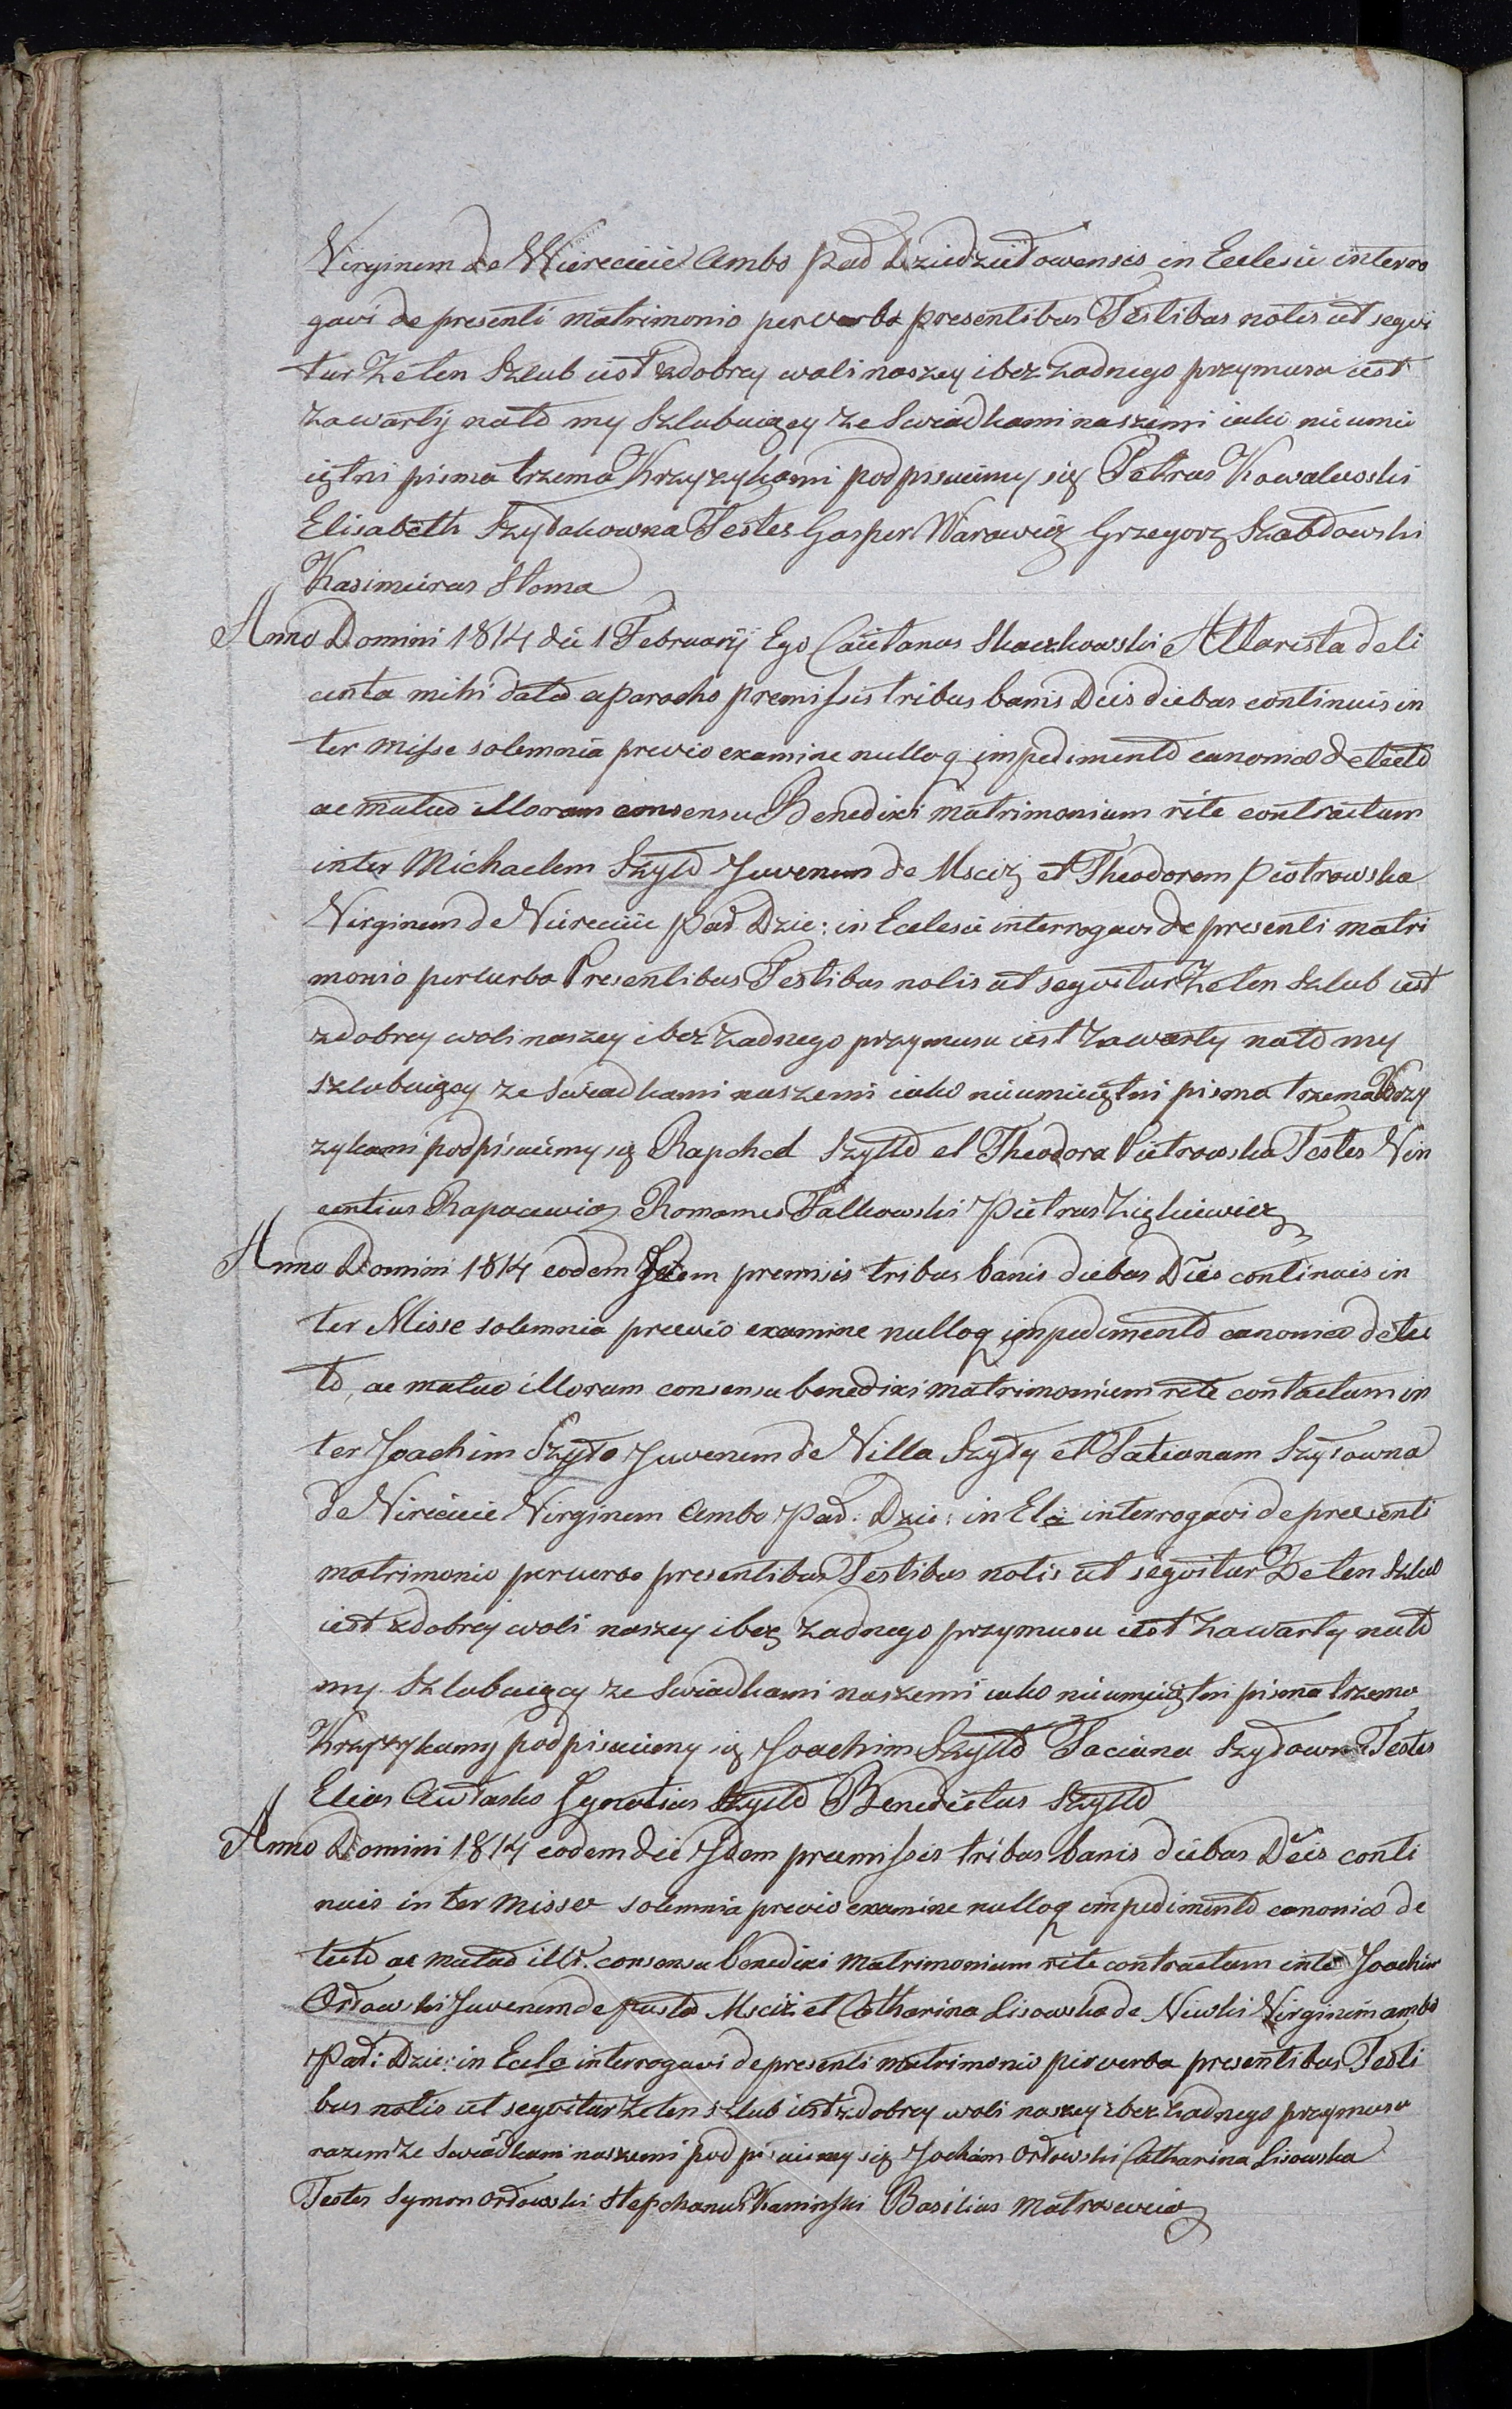 Virginem de Wierecieie Ambo Pad Dziedziełowensis in Eclesie interro
gavi de presenti matrimonio perverba presentibus Testibus notis ut segvi
tur Ze ten Szlub iest zdobrey woli naszey i bez zadnego przymusu iest
zawarty nato my Szlubuiący ze Swiadkami naszemi iako nieumie
iętni pisma trzema Krzyzykami podpisuiemy się Petrus Kowalewski
Elisabeth Szydakowna Testes Gasper Warawicz Grzegorz Szabłowski
Kasimieras Słoma
Anno Domini 1814 die 1 February Ego Caietanus Skaczkowski Altarista de li
centa mihi data a parocho premissis tribus banis Deis diebus continuis in
ter misse solemnia previo examine nulloq impedimento canonico detecto
ac mutuo illorum consensu Benedixi matrimonium rite contractum
inter Michaelem Szyło Juvenem de Msciż et Theodorem Piotrowska
Virginem de Niereciie Pad Dzie: in Eclesie interrogavi de presenti matri
monio perverba Presentibus Testibus notis ut segvitur Ze ten Szlub iest
zdobrey woli naszey i bez zadnego przymusu iest Zawarty nato my
szlubuiący ze Swiadkami naszemi iako nieumieiętni pisma trzema Krzy
zykami podpisuiemy się Rapchel Szyłło et Theodora Pietrowska Testes Vin
centius Rapacewicz Romanus Falkowski Pietrus Ziękiewicz
Anno Domini 1814 eodem Idem premisis tribus banis diebus Deis continuis in
ter Misse solemnia previo examine nulloq impedimento canonico dete
to, ac mutuo illorum consensu benedixi matrimonium rete contactum in
ter Joachim Szyło Juvenem de Villa Szyły et Tatianam Szyłowna
de Virecieie Virginem Ambo Pad: Dzie: in Ela interrogavi de presenti
matrimonio perverba presentibus Testibus notis ut segvitur Ze ten Szlub
iest zdobrey woli naszey i bez zadnego przymusu iest zawarty nato
my Szlubuiący ze Swiadkami naszemi iako nieumieiętni pisma trzema
Krzyzykamy podpisuiemy ię Joachim Szyłło Taciana Szyłowna Testes
Elias Awłasko Ignatius Szyłło Benedictus Szyłło
Anno Domini 1814 eodem die Idem premissis tribus banis diebus Deis conti
nuis inter Misse solemnia previo examine nulloq impedimento canonico de
tecto ac mutuo illr. consensu benedixi matrimonium rite contractum inter Joachim
Orłowski Juvenem de pusta Msciż et Catharina Lisowska de Niwki Virginem ambo
Pad: Dzie: in Ecla interrogavi de presenti matrimonio perverba presentibus Testi
bus notis ut segvitur Ze ten szlub iest zdobrey woli naszey i bez zadnego przymusu
razem Ze Swiadkami naszemi podpisuiemy się Jochim Orłowski Catharina Lisowska
Testes Symon Orłowski Stepchanus Kaminski Basilius Matrasewicz